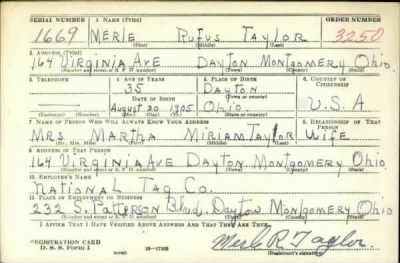 SERIAL NUMBER 1. NAME (Print) ORDER NUMBER
1669 MERLE RUFUS TAYLOR 3250
(First) (Middle) (Last)
2. ADDRESS (Print)
164 VIRGINIA AVE DAYTON MONTGOMERY OHIO
(Number and street or R. F. D. number) (Town) (County) (State)
3. TELEPHONE 4. AGE IN YEARS 5. PLACE OF BIRTH 6. COUNTRY OF CITIZENSHIP
35 DAYTON
DATE OF BIRTH (Town or county)
AUGUST 20 1905 OHIO U.S.A
(Mo.) (Day) (Yr.) (State or country)
7. NAME OF PERSON WHO WILL ALWAYS KNOW YOUR ADDRESS 8. RELATIONSHIP OF THAT PERSON
MRS MARTHA MIRIAM TAYLOR WIFE
(Mr., Mrs., Miss) (First) (Middle) (Last)
9. ADDRESS OF THAT PERSON
164 VIRGINIA AVE DAYTON MONTGOMERY OHIO
(Number and street or R. F. D. number) (Town) (County) (State)
10. EMPLOYER'S NAME
NATIONAL TAG CO.
11. PLACE OF EMPLOYMENT OR BUSINESS
232 S. PATTERSON Blvd. DAYTON MONTGOMERY OHIO
(Number and street or R. F. D. number) (Town) (County) (State)
I AFFIRM THAT I HAVE VERIFIED ABOVE ANSWERS AND THAT THEY ARE TRUE.
REGISTRATION CARD
D. S. S. Form 1 (over) 16—17105 Merle R. Taylor
(Registrant's signature)